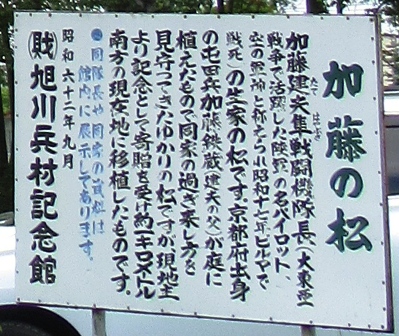 加藤の松
加藤建夫隼戦闘機隊長（大東亜
たて はやぶさ
戦争で活躍した陸軍の名パイロット、
空の軍神と称えられ昭和十七年ビルマで
戦死）の生家の松です。京都府出身
の屯田兵加藤鉄蔵（建夫の父）が庭に
植えたもので同家の過ぎ来し方を
見守ってきたゆかりの松ですが現地主
より記念として寄贈を受け約一キロメートル
南方の現在地に移植したものです。
◎同隊長や同家の写真は
館内に展示してあります。
昭和六十二年九月
(財)旭川兵村記念館